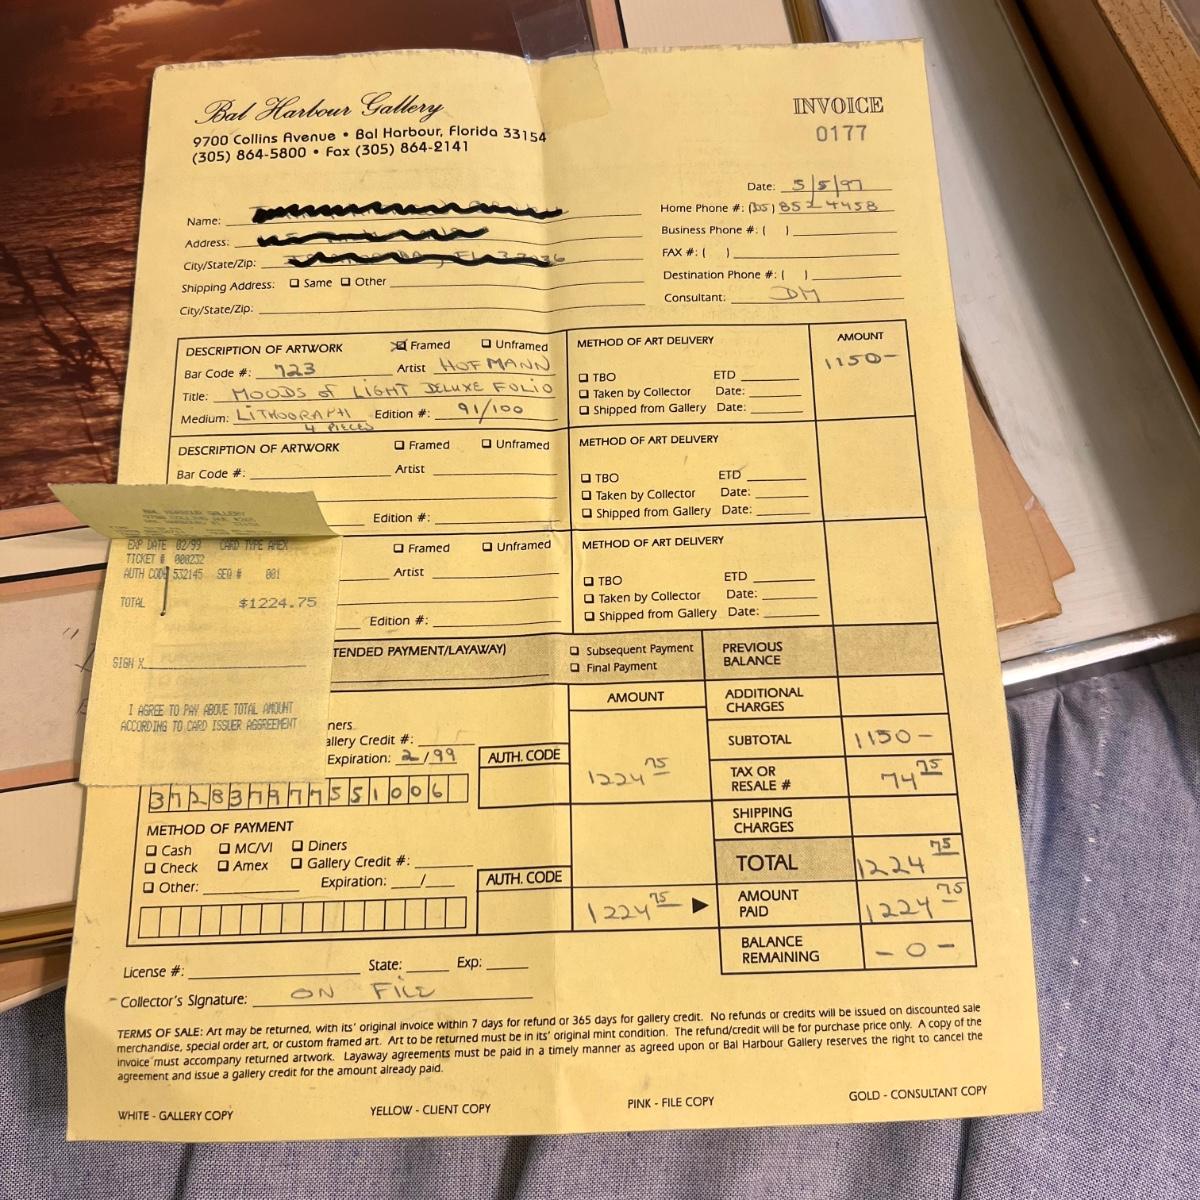 Bal Harbour Gallery
9700 Collins Avenue • Bal Harbour, Florida 33154
(305) 864-5800 • Fax (305) 864-2141
INVOICE
0177
Date: 5/5/97
Home Phone #: (305) 852-4458
Business Phone #: ( )
FAX #: ( )
Destination Phone #: ( )
Consultant: DM
Name:
Address:
City/State/Zip:
Shipping Address: Same Other
City/State/Zip:
DESCRIPTION OF ARTWORK Framed Unframed
Bar Code #: 723 Artist HOFMANN
Title: MOODS of LIGHT DELUXE FOLIO
Medium: LITHOGRAPH Edition #: 91/100
4 PIECES
METHOD OF ART DELIVERY
TBO ETD
Taken by Collector Date:
Shipped from Gallery Date:
AMOUNT
1150-
DESCRIPTION OF ARTWORK Framed Unframed
Bar Code #: Artist
Edition #:
METHOD OF ART DELIVERY
TBO ETD
Taken by Collector Date:
Shipped from Gallery Date:
Framed Unframed
Artist
Edition #:
METHOD OF ART DELIVERY
TBO ETD
Taken by Collector Date:
Shipped from Gallery Date:
BAL HARBOUR GALLERY
EXP DATE 02/99 CARD TYPE AMEX
TICKET # 000232
AUTH CODE 532145 SEQ # 001
TOTAL $1224.75
SIGN X
I AGREE TO PAY ABOVE TOTAL AMOUNT
ACCORDING TO CARD ISSUER AGGREEMENT
TENDED PAYMENT/LAYAWAY)
Subsequent Payment
Final Payment
PREVIOUS
BALANCE
AMOUNT
ADDITIONAL
CHARGES
ners
allery Credit #:
Expiration: 2/99
AUTH. CODE
1224 75
372837977551006
SUBTOTAL 1150-
TAX OR
RESALE # 74 75
SHIPPING
CHARGES
METHOD OF PAYMENT
Cash MC/VI Diners
Check Amex Gallery Credit #:
Other: Expiration: /
AUTH. CODE
1224 75
TOTAL 1224 75
AMOUNT
PAID 1224 75
BALANCE
REMAINING -0-
License #: State: Exp:
Collector's Signature: ON FILE
TERMS OF SALE: Art may be returned, with its' original invoice within 7 days for refund or 365 days for gallery credit. No refunds or credits will be issued on discounted sale
merchandise, special order art, or custom framed art. Art to be returned must be in its' original mint condition. The refund/credit will be for purchase price only. A copy of the
invoice must accompany returned artwork. Layaway agreements must be paid in a timely manner as agreed upon or Bal Harbour Gallery reserves the right to cancel the
agreement and issue a gallery credit for the amount already paid.
WHITE - GALLERY COPY YELLOW - CLIENT COPY PINK - FILE COPY GOLD - CONSULTANT COPY